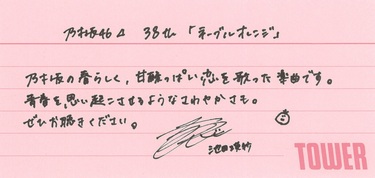 乃木坂46 38th 「ネーブルオレンジ」
乃木坂の春らしく、甘酸っぱい恋を歌った楽曲です。
青春を思い起こさせるようなさわやかさも。
ぜひお聴きください。
池田瑛紗
TOWER